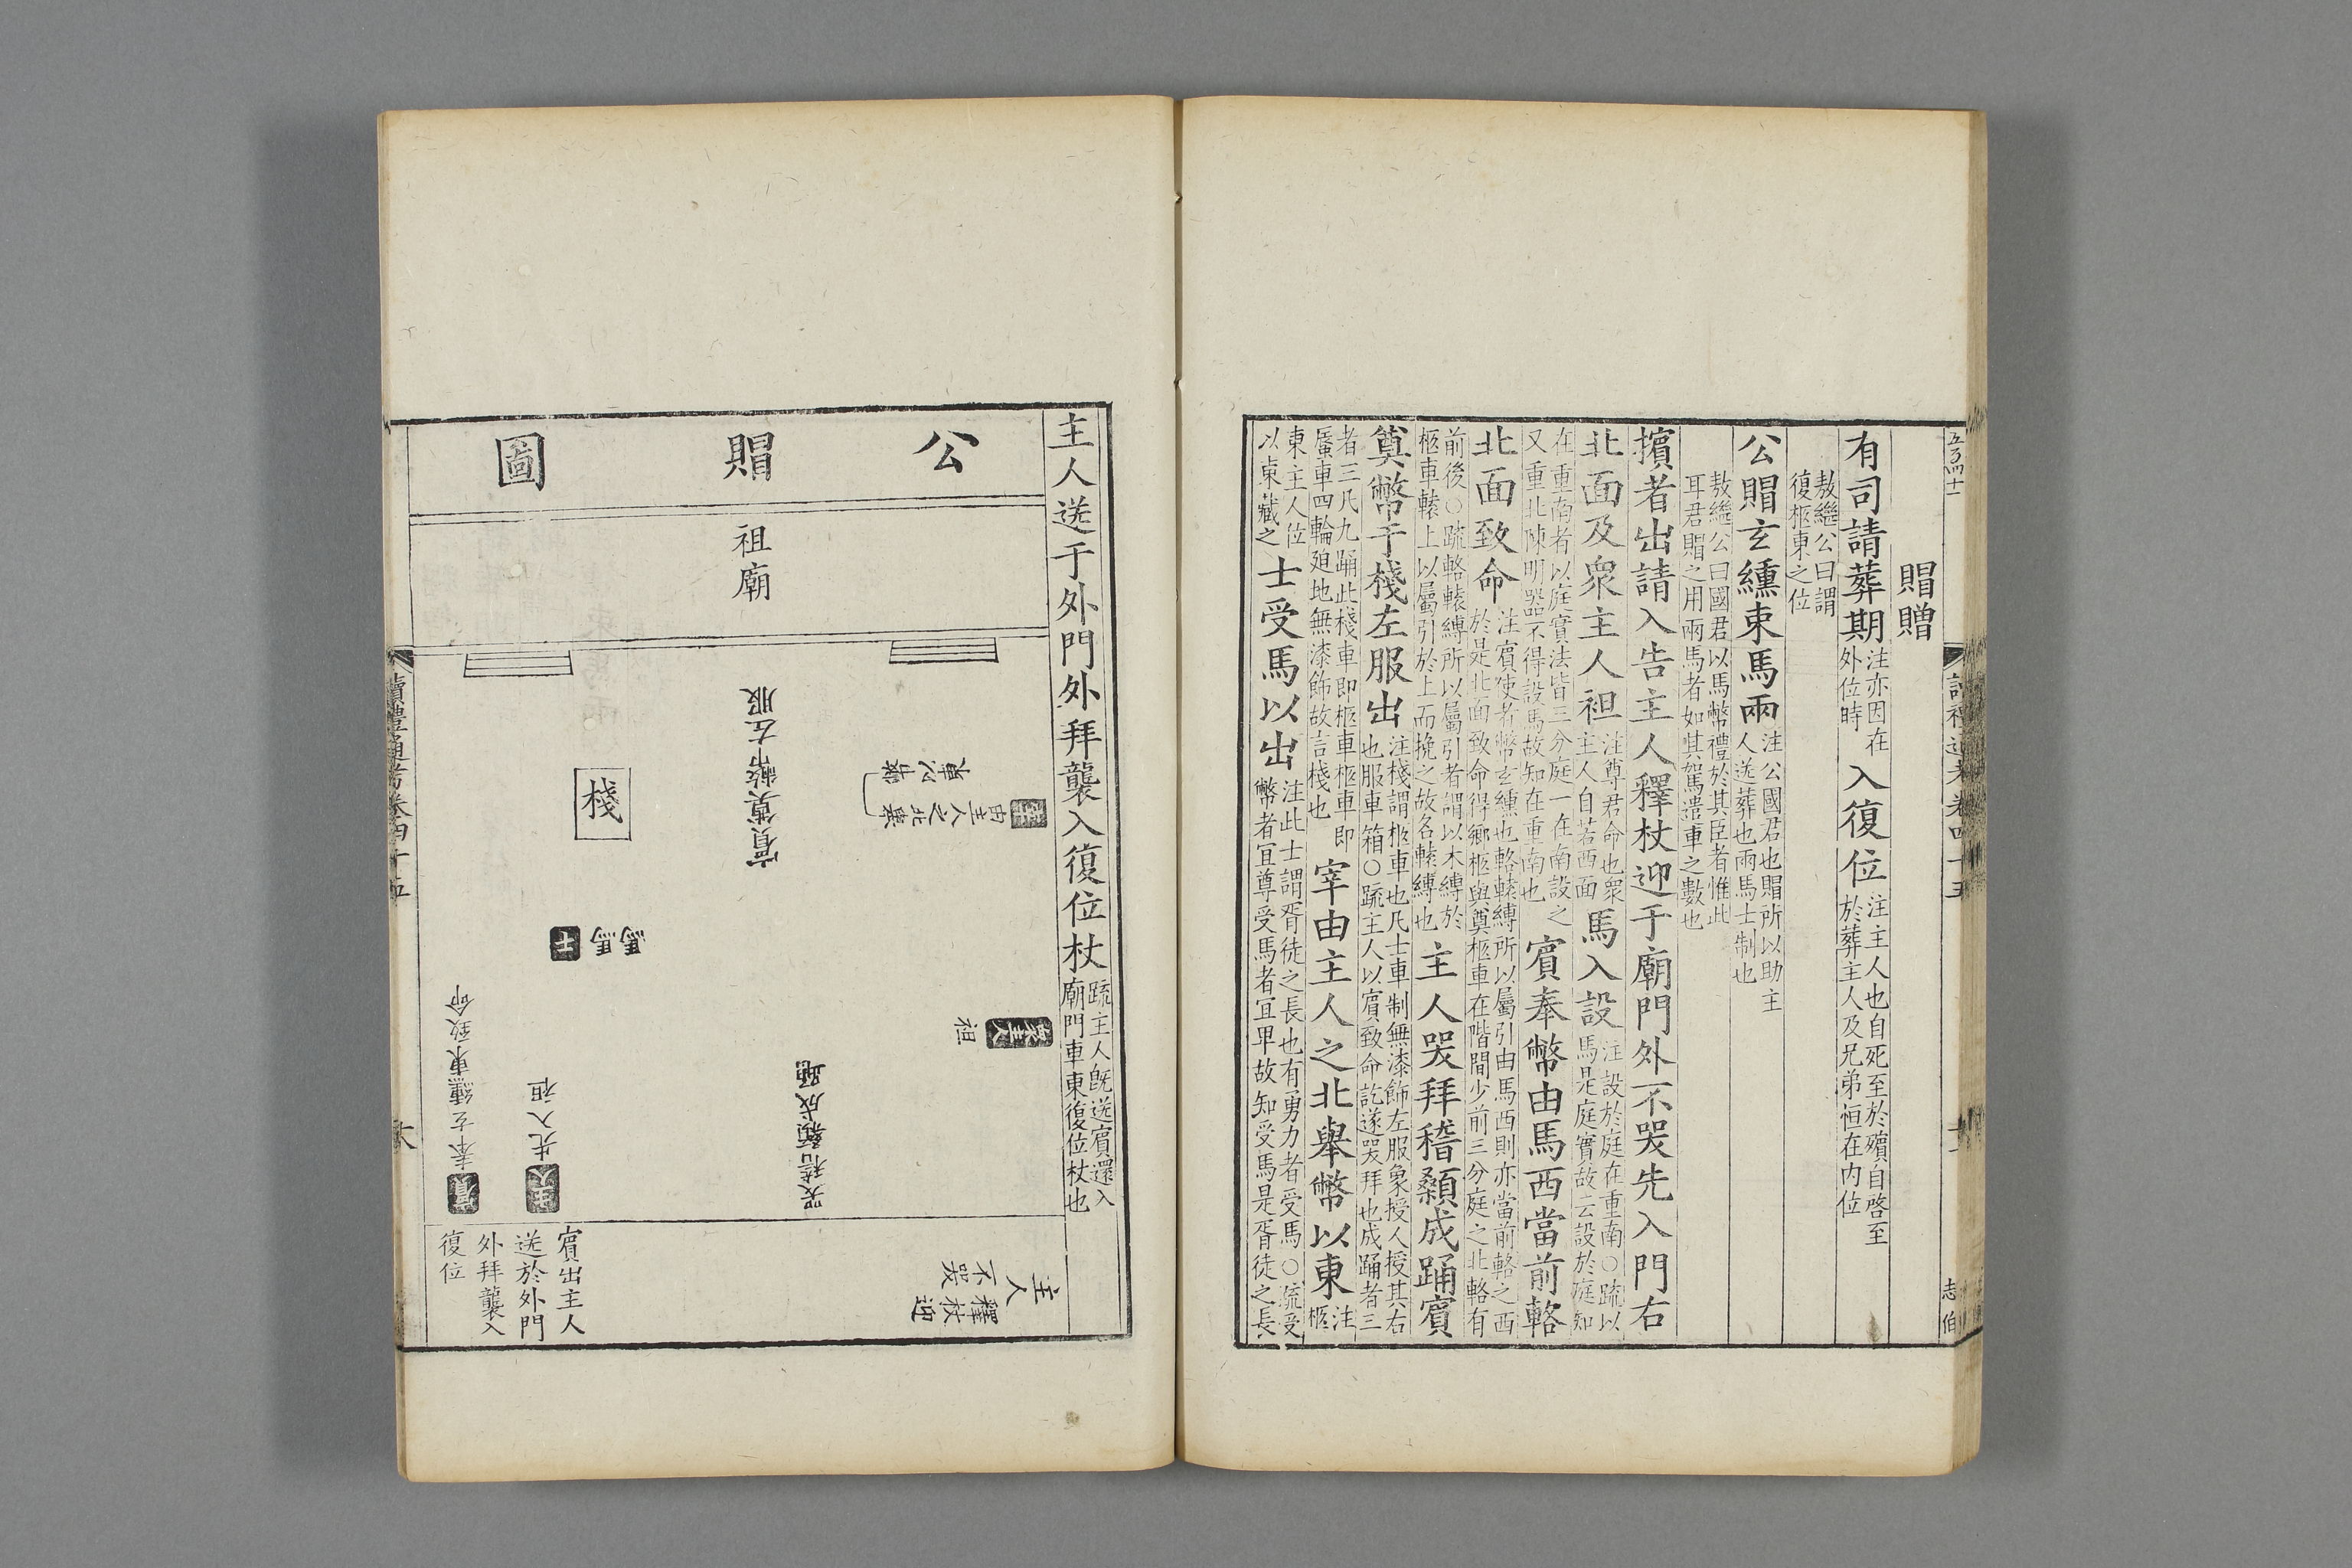 五百四十一
讀禮通考卷四十五
志伯
賵贈
有司請葬期注亦因在外位時入復位注主人也自死至於殯自啓至於葬主人及兄弟恒在內位
敖繼公曰謂復柩東之位
公賵玄纁束馬兩注公國君也賵所以助主人送葬也兩馬士制也
敖繼公曰國君以馬幣禮於其臣者惟此耳君賵之用兩馬者如其駕遣車之數也
擯者出請入告主人釋杖迎于廟門外不哭先入門右
北面及衆主人袒注尊君命也衆主人自若西面馬入設注設於庭在重南○疏以馬是庭實故云設於庭知
在重南者以庭實法皆三分庭一在南設之又重北陳明器不得設馬故知在重南也賓奉幣由馬西當前輅
北面致命注賓使者幣玄纁也輅轅縛所以屬引由馬西則亦當前輅之西於是北面致命得鄉柩與奠柩車在階間少前三分庭之北輅有
前後○疏輅轅縛所以屬引者謂以木縛於柩車轅上以屬引於上而挽之故名轅縛也主人哭拜稽顙成踊賓
奠幣于棧左服出注棧謂柩車也凡士車制無漆飾左服象授人授其右也服車箱○疏主人以賓致命訖遂哭拜也成踊者三
者三凡九踊此棧車即柩車柩車即蜃車四輪迫地無漆飾故言棧也宰由主人之北舉幣以東注柩
東主人位以東藏之士受馬以出注此士謂胥徒之長也有勇力者受馬○疏受幣者宜尊受馬者宜畢故知受馬是胥徒之長
主人送于外門外拜襲入復位杖疏主人旣送賓還入廟門車東復位杖也
公賵圖
祖廟
由主人之北舉幣以東
賓奠幣左服
棧
馬馬
士
衆主人
袒
哭稽顙成踊
主人
先入袒
賓
奉玄纁束致命
主人不哭
釋杖迎
賓出主人
送於外門
外拜襲入
復位
讀禮通考卷四十五